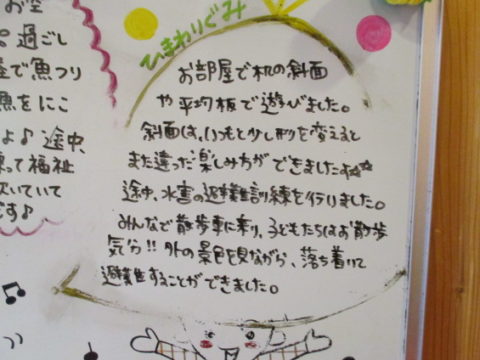 お空
過ごし
で魚つり
魚をにこ
よ♪ 途中
って福祉
吹いていて
です♪
ひまわりぐみ
お部屋で机の斜面
や平均板で遊びました。
斜面は、いつもと少し形を変えると
また違った楽しみ方ができました☆☆
途中、水害の避難訓練を行いました。
みんなで散歩車に乗り、子どもたちはお散歩
気分!! 外の景色を見ながら、落ち着いて
避難することができました。